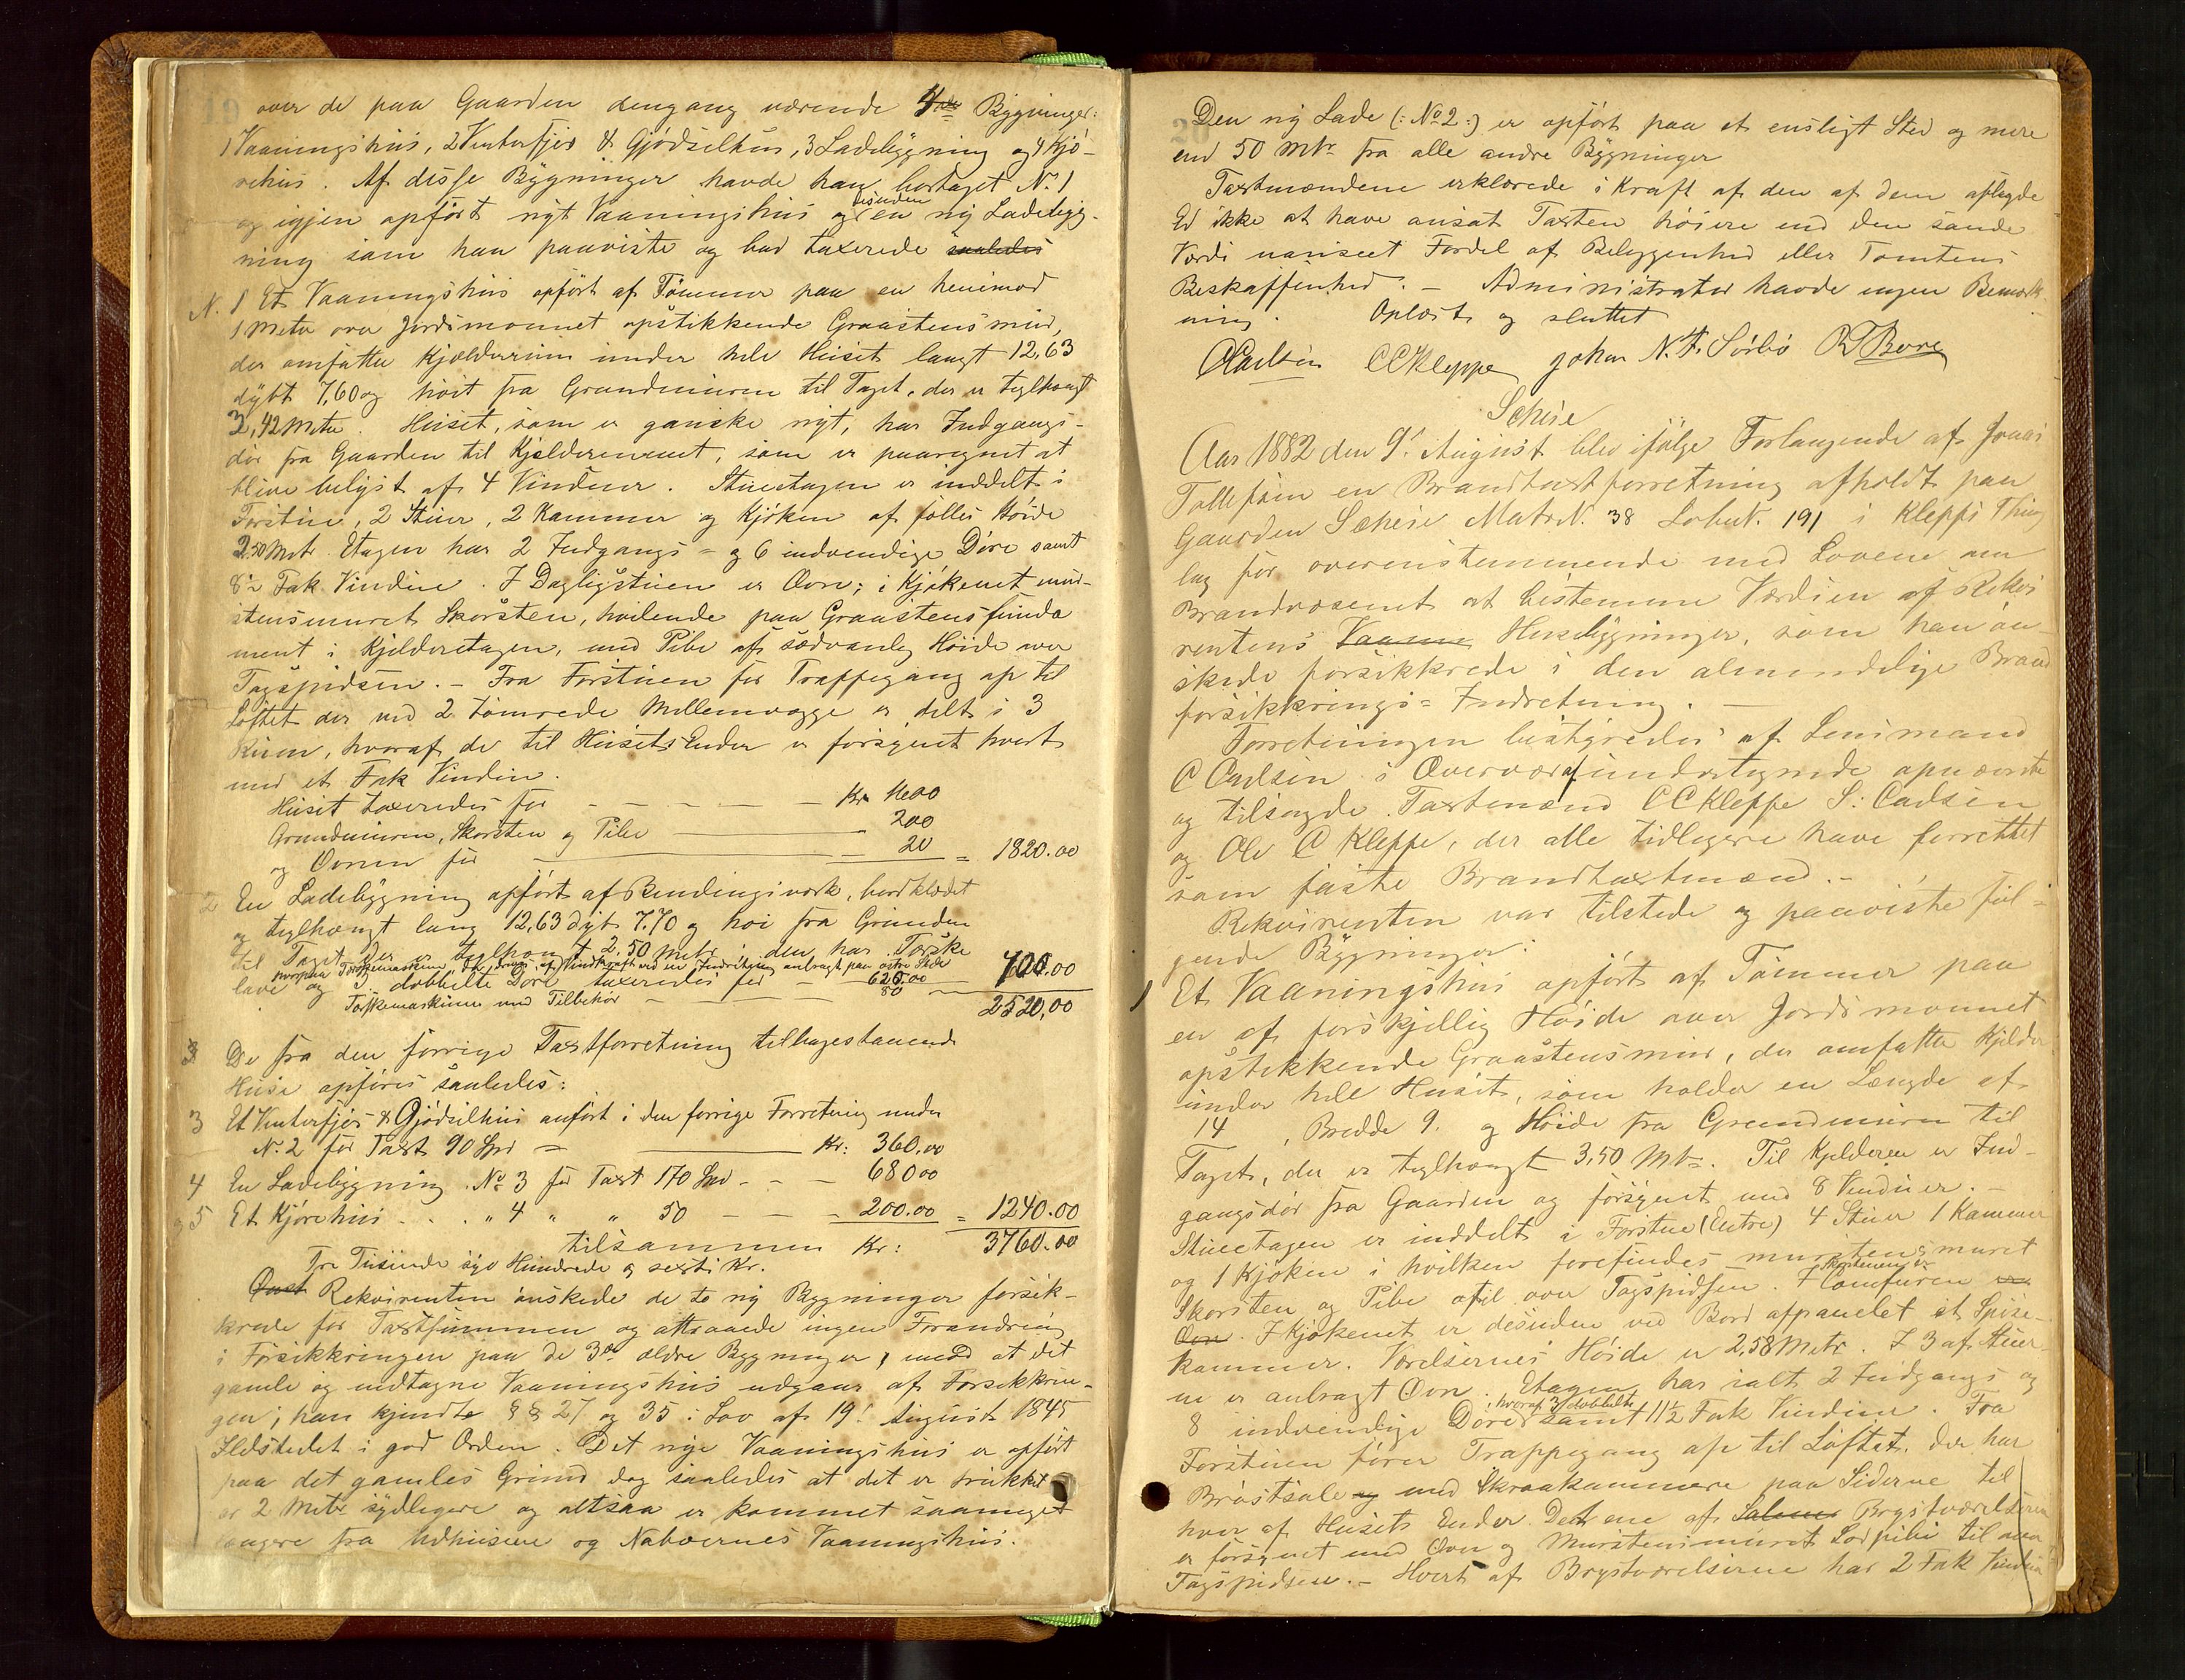 19
over de paa Gaarden dengang værende 4de Bygninger:
1 Vaaningshus, 2 Vinterfjøs & Gjødselhus, 3 Ladebygning og 4 Kjø-
rehus. Af disse Bygninger havde han borttaget N. 1
og igjen opført nyt Vaaningshus og desuden en ny Ladebyg-
ning som han paaviste og bad taxerede saaledes
N. 1 Et Vaaningshus opført af Tømmer paa en henimod
1 Meter over Jordsmonnet opstikkende Graastensmur,
der omfatter Kjælderrum under hele Huset langt 12,63
dybt 7,60 og høit fra Grundmuren til Taget, der er teglhængt
3,42 Meter. Huset, som er ganske nyt, har Indgangs-
dør fra Gaarden til Kjelderrummet, som er paaregnet at
blive belyst af 4 Vinduer. Stueetagen er inddelt i
Forstue, 2 Stuer, 2 Kammer og Kjøken af fælles Høide
2.50 Metr. Etagen har 2 Indgangs- og 6 indvendige Døre samt
8½ Fak Vindue. I Dagligstuen er Ovn; i Kjøkenet mur-
stensmuret Skorsten, hvilende paa Graastensfunda
ment i Kjelderetagen, med Pibe af sædvanlig Høide over
Tagspidsen. - Fra Forstuen før Trappegang op til
Loftet der ved 2 tømrede Mellemvægge er delt i 3
Rum, hvoraf de til Husets Ender er forsynet hvert
med et Fak Vindue.
Huset taxeredes for - - - - Kr. 1600
Grundmuren, Skorsten og Pibe - 200
og Ovnen for - 20 = 1820.00
2 En Ladebygning opført af Bendingsværk, bordklædt
og teglhængt lang 12,63 dybt 7.70 og høi fra Grunden
til Taget der er teglhængt 2,50 Metr. den har Tærske
hvorpaa Tærskemaskine der drives af Vindkraft ved en Indretning anbragt paa østre Side
lave og 3 dobbelte Døre taxeredes for - 620.00 700.00
Tærskemaskinen med Tilbehør - 80 - 2520,00
3 De fra den forrige Taxtforretning tilbagestaaende
Huse opføres saaledes:
3 Et Vinterfjøs & Gjødselhus anført i den forrige Forretning under
N. 2 for Taxt 90 Spd = Kr: 360,00
4 En Ladebygning No 3 for Taxt 170 Spd - - - 680 00
og 5 Et Kjørehus . . . " 4 " " 50 - - - 200.00 = 1240.00
tilsammen Kr: 3760.00
Tre Tusinde syv Hundrede og sexti Kr.
Rekvirenten ønskede de to ny Bygninger forsik-
krede for Taxtsummen og attraaede ingen Forandring
i Forsikkringen paa de 3de ældre Bygninger, med at det
gamle og nedtagne Vaaningshus udgaar af Forsikkrin-
gen; han kjendte §§ 27 og 35 i Lov af 19. August 1845
Ildstedet i god Orden. Det nye Vaaningshus er opført
paa det gamles Grund dog saaledes at det er trukket
2 Metr sydligere og altsaa er kommet saameget
længere fra Udhusene og Naboernes Vaaningshus.
Den ny Lade (: No 2 :) er opført paa et ensligt Sted og mere
end 50 Mtr fra alle andre Bygninger
Taxtmændene erklærede i Kraft af den af dem aflagde
Ed ikke at have ansat Taxten høiere end den sande
Værdi uanseet Fordel af Beliggenhed eller Tomtens
Beskaffenhed. - Administrator havde ingen Bemærk-
ning. Oplæst og sluttet
C Carlsen C C Kleppe Johan N. T. Sørbø
Aar 1882 den 9' August blev ifølge Forlangende af Jonas
Tollefsen en Brandtaxtforretning afholdt paa
Gaarden Matr N. 38 Løbn. 191 i Klepps Thing
lag for overensstemmende med Lovene om
Brandvæsenet at bestemme Værdien af Rekvi
rentens Vaanin Husebygninger, som han øn-
skede forsikkrede i den almindelige Brand
forsikkrings-Indretning. -
Forretningen bestyredes af Lensmand
C Carlsen i Overvær af undertegnede opnævnte
og tilsagde Taxtmænd C C Kleppe S: Carlsen
og Ole C Kleppe, der alle tidligere have forrettet
som faste Brandtaxtmænd. -
Rekvirenten var tilstede og paaviste føl-
gende Bygninger:
1 Et Vaaningshus opført af Tømmer paa
en af forskjellig Høide over Jordsmonnet
opstikkende Graastensmur, der omfatter Kjelder
under hele Huset, som holder en Længde af
14 , Bredde 9. og Høide fra Grundmuren til
Taget, der er teglhængt 3,50 Mtr. Til Kjelderen er Ind-
gangsdør fra Gaarden og forsynet med 8 Vinduer. -
Stueetagen er inddelt i Forstue (Entre) 4 Stuer 1 Kammer
og 1 Kjøken i hvilken forefindes murstensmuret
Skorsten og Pibe over Tagspidsen. I Skorstenen er Comfuren
Ovn. I Kjøkenet er desuden ved Bord afpanelet et Spise-
kammer. Værelsernes Høide er 2,58 Metr. I 3 af Stuer-
ne er anbragt Ovn. Etagen har ialt 2 Indgangs og
8 indvendige Døre hvoraf 3 dobbelte samt 11½ Fak Vinduer. Fra
Forstuen fører Trappegang op til Loftet, der har
Brøstsale og med Skraakammere paa Siderne til
hver af Husets Ender. Det ene af Salene Brystværelserne
er forsynet med Ovn og Murstensmuret Lodpibe til over
Tagspidsen. - Hvert af Brystværelserne har 2 Fak Vinduer